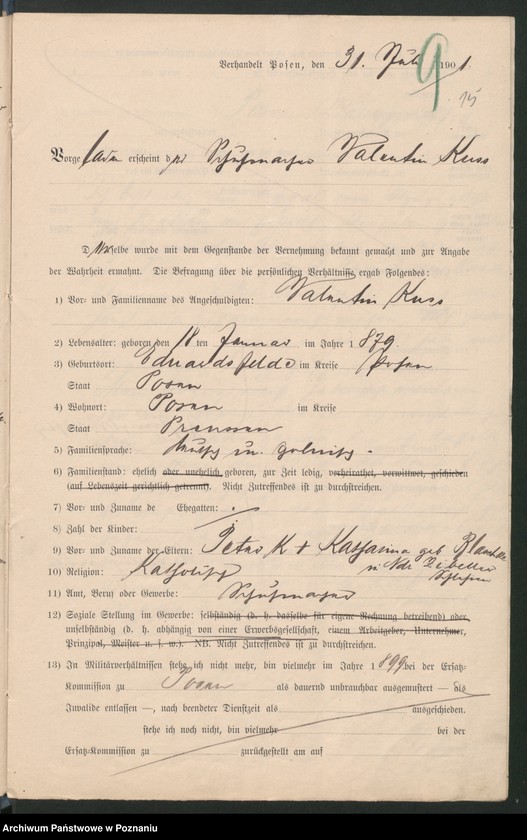 Verhandelt Posen, den 31. Juli 1901.
9
15
Vorgeladen erscheint der Schuhmacher Valentin Kuss
Derselbe wurde mit dem Gegenstande der Vernehmung bekannt gemacht und zur Angabe
der Wahrheit ermahnt. Die Befragung über die persönlichen Verhältnisse ergab Folgendes:
1) Vor- und Familienname des Angeschuldigten: Valentin Kuss
2) Lebensalter: geboren den 18 ten Januar im Jahre 1879.
3) Geburtsort: Eduardsfelde im Kreise Posen
Staat Posen
4) Wohnort: Posen im Kreise
Staat Preussen
5) Familiensprache: deutsch u. polnisch.
6) Familienstand: ehelich oder unehelich geboren, zur Zeit ledig, verheirathet, verwittwet, geschieden
(auf Lebenszeit gerichtlich getrennt). Nicht Zutreffendes ist zu durchstreichen.
7) Vor- und Zuname de Ehegatten:
8) Zahl der Kinder:
9) Vor- und Zuname der Eltern: Peter K + Katharina geb
in Ndr
Schlesien
10) Religion: Katholisch
11) Amt, Beruf oder Gewerbe: Schuhmacher
12) Soziale Stellung im Gewerbe: selbständig (d. h. dasselbe für eigene Rechnung betreibend) oder
unselbständig (d. h. abhängig von einer Erwerbsgesellschaft, einem Arbeitgeber, Unternehmer,
Prinzipal, Meister u. s. w.). NB. Nicht Zutreffendes ist zu durchstreichen.
13) In Militärverhältnissen stehe ich nicht mehr, bin vielmehr im Jahre 1899 bei der Ersatz-
Kommission zu Posen als dauernd unbrauchbar ausgemustert — als
Invalide entlassen —, nach beendeter Dienstzeit als ausgeschieden.
stehe ich noch nicht, bin vielmehr bei der
Ersatz-Kommission zu zurückgestellt am auf
Archiwum Państwowe w Poznaniu